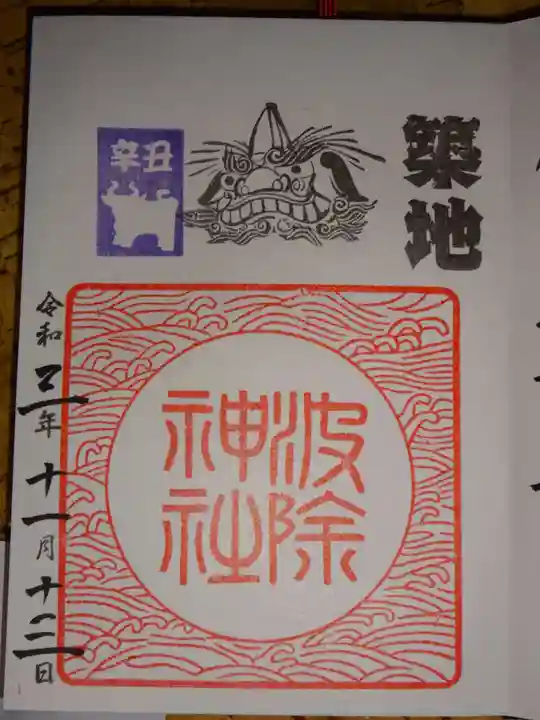 築地
辛丑
波除
神社
令和三年十一月十三日